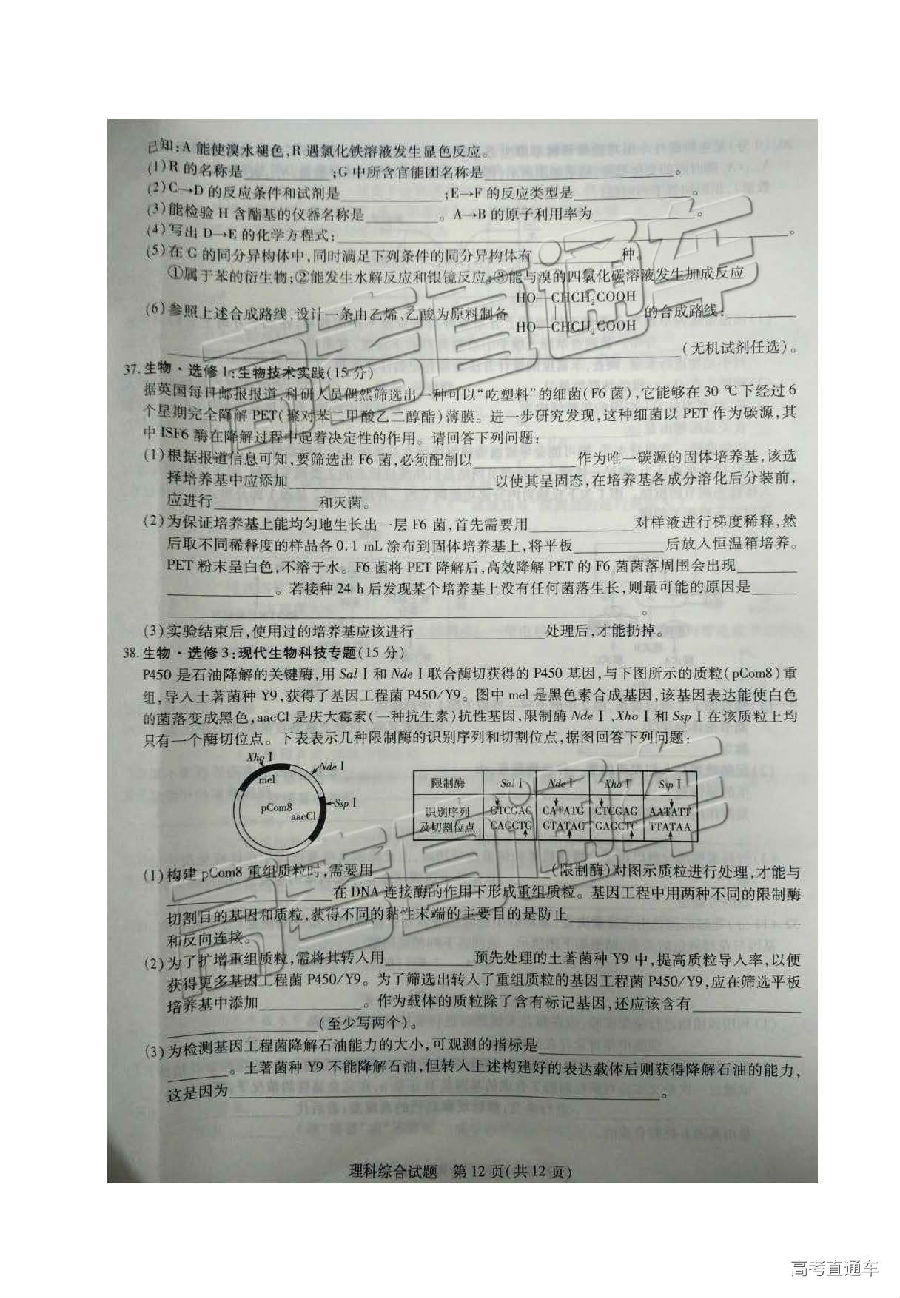 已知:A能使溴水褪色,R遇氯化铁溶液发生显色反应。
(1)R的名称是________;G中所含官能团名称是________。
(2)C→D的反应条件和试剂是________;E→F的反应类型是________。
(3)能检验H含酯基的仪器名称是________。A→B的原子利用率为________。
(4)写出D→E的化学方程式:________。
(5)在G的同分异构体中,同时满足下列条件的同分异构体有________种。
①属于苯的衍生物;②能发生水解反应和银镜反应;③能与溴的四氯化碳溶液发生加成反应
HO—CHCH2COOH
(6)参照上述合成路线,设计一条由乙烯、乙酸为原料制备 的合成路线:________
HO—CHCH2COOH
________(无机试剂任选)。
37.生物·选修1:生物技术实践(15分)
据英国每日邮报报道,科研人员偶然筛选出一种可以“吃塑料”的细菌(F6菌),它能够在30 ℃下经过6
个星期完全降解PET(聚对苯二甲酸乙二醇酯)薄膜。进一步研究发现,这种细菌以PET作为碳源,其
中ISF6酶在降解过程中起着决定性的作用。请回答下列问题:
(1)根据报道信息可知,要筛选出F6菌,必须配制以________作为唯一碳源的固体培养基,该选
择培养基中应添加________以使其呈固态,在培养基各成分溶化后分装前,
应进行________和灭菌。
(2)为保证培养基上能均匀地生长出一层F6菌,首先需要用________对样液进行梯度稀释,然
后取不同稀释度的样品各0.1 mL涂布到固体培养基上,将平板________后放入恒温箱培养。
PET粉末呈白色,不溶于水。F6菌将PET降解后,高效降解PET的F6菌菌落周围会出现________
________。若接种24 h后发现某个培养基上没有任何菌落生长,则最可能的原因是________
________。
(3)实验结束后,使用过的培养基应该进行________处理后,才能扔掉。
38.生物·选修3:现代生物科技专题(15分)
P450是石油降解的关键酶,用SalⅠ和NdeⅠ联合酶切获得的P450基因,与下图所示的质粒(pCom8)重
组,导入土著菌种Y9,获得了基因工程菌P450/Y9。图中mel是黑色素合成基因,该基因表达能使白色
的菌落变成黑色,aacCl是庆大霉素(一种抗生素)抗性基因,限制酶NdeⅠ、XhoⅠ和SspⅠ在该质粒上均
只有一个酶切位点。下表表示几种限制酶的识别序列和切割位点,据图回答下列问题:
XhoⅠ
NdeⅠ
mel
SspⅠ
pCom8
aacCl
限制酶 SalⅠ NdeⅠ XhoⅠ SspⅠ
识别序列 GTCGAC CATATG CTCGAG AATATT
及切割位点 CAGCTG GTATAC GAGCTC TTATAA
(1)构建pCom8重组质粒时,需要用________(限制酶)对图示质粒进行处理,才能与
________在DNA连接酶的作用下形成重组质粒。基因工程中用两种不同的限制酶
切割目的基因和质粒,获得不同的黏性末端的主要目的是防止________
和反向连接。
(2)为了扩增重组质粒,需将其转入用________预先处理的土著菌种Y9中,提高质粒导入率,以便
获得更多基因工程菌P450/Y9。为了筛选出转入了重组质粒的基因工程菌P450/Y9,应在筛选平板
培养基中添加________。作为载体的质粒除了含有标记基因,还应该含有________
________(至少写两个)。
(3)为检测基因工程菌降解石油能力的大小,可观测的指标是________
________。土著菌种Y9不能降解石油,但转入上述构建好的表达载体后则获得降解石油的能力,
这是因为________。
理科综合试题 第12页(共12页)
高考直通车
高考直通车
高考直通车